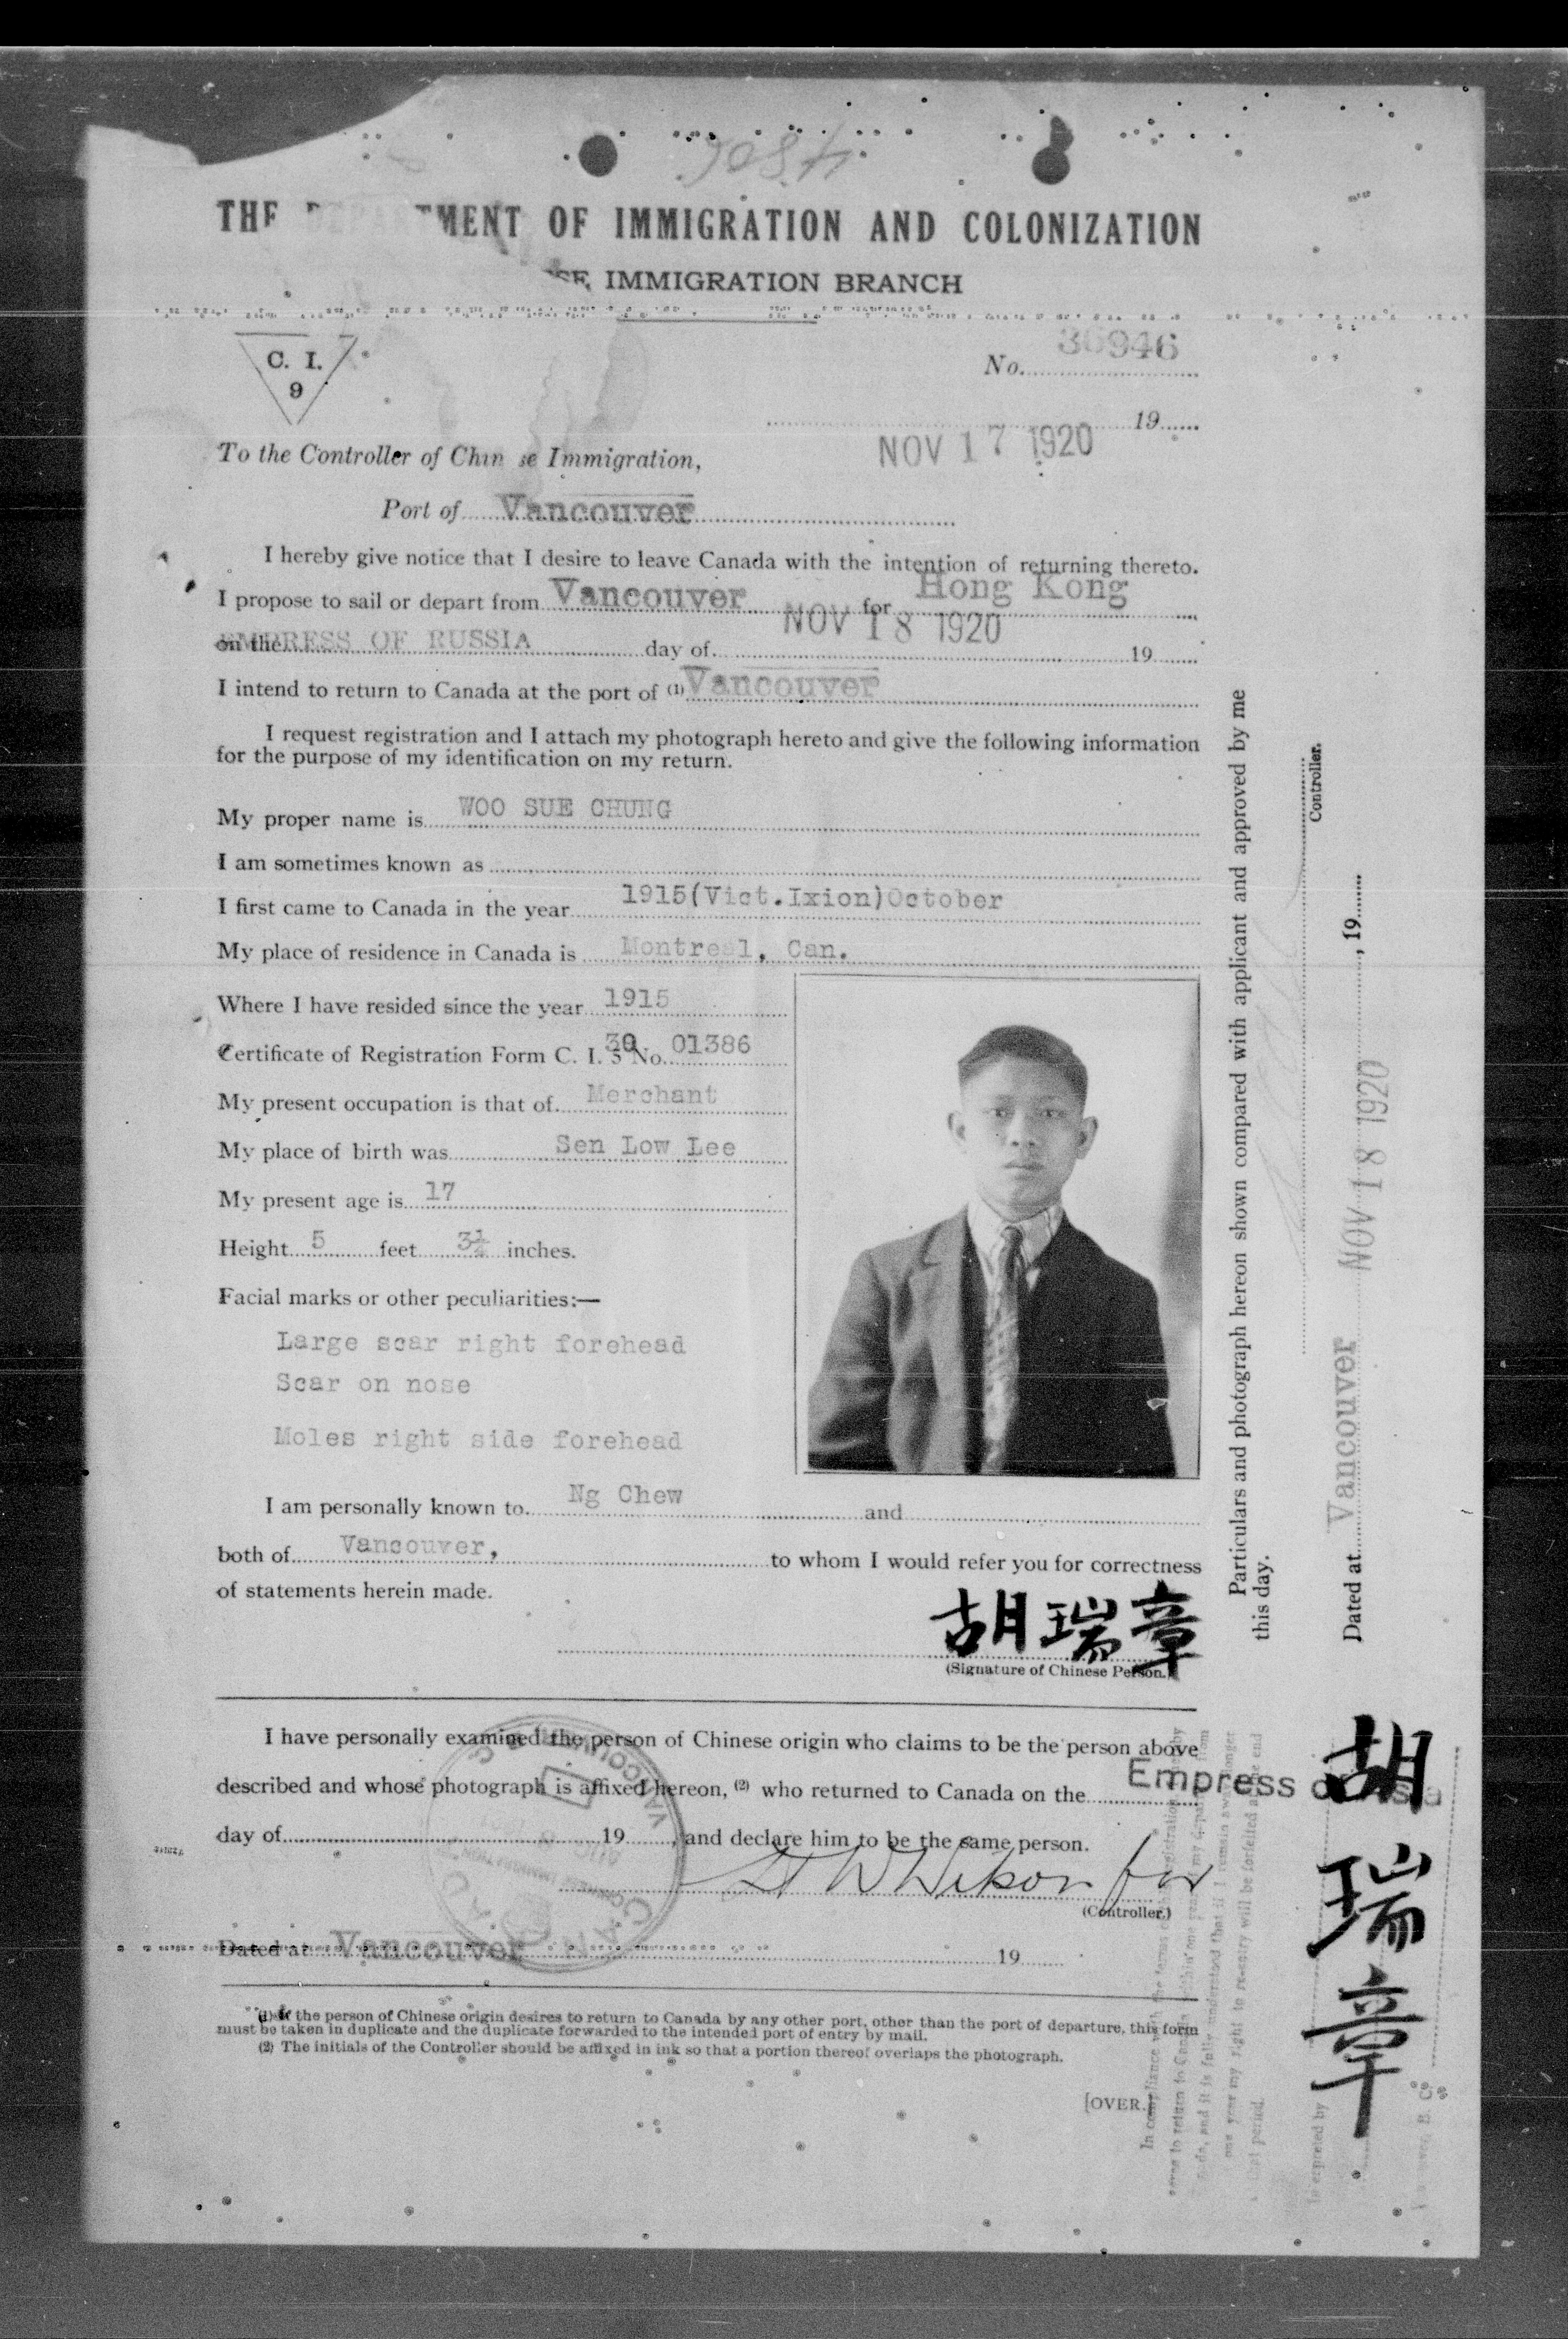 THE DEPARTMENT OF IMMIGRATION AND COLONIZATION
SE IMMIGRATION BRANCH
C. I.
9
No. 36946
NOV 17 1920 19
To the Controller of Chinese Immigration,
Port of Vancouver
I hereby give notice that I desire to leave Canada with the intention of returning thereto.
I propose to sail or depart from Vancouver for Hong Kong
on the EMPRESS OF RUSSIA day of NOV 18 1920 19
I intend to return to Canada at the port of (1) Vancouver
I request registration and I attach my photograph hereto and give the following information
for the purpose of my identification on my return.
My proper name is WOO SUE CHUNG
I am sometimes known as
I first came to Canada in the year 1915(Vict.Ixion)October
My place of residence in Canada is Montreal, Can.
Where I have resided since the year 1915
Certificate of Registration Form C. I. 5 30 No. 01386
My present occupation is that of Merchant
My place of birth was Sen Low Lee
My present age is 17
Height 5 feet 3½ inches.
Facial marks or other peculiarities:—
Large scar right forehead
Scar on nose
Moles right side forehead
I am personally known to Ng Chew and
both of Vancouver, to whom I would refer you for correctness
of statements herein made.
胡瑞章
(Signature of Chinese Person.)
I have personally examined the person of Chinese origin who claims to be the person above
described and whose photograph is affixed hereon, (2) who returned to Canada on the Empress of Asia
day of 19 , and declare him to be the same person.
for
(Controller.)
Dated at Vancouver 19
(1) If the person of Chinese origin desires to return to Canada by any other port, other than the port of departure, this form
must be taken in duplicate and the duplicate forwarded to the intended port of entry by mail.
(2) The initials of the Controller should be affixed in ink so that a portion thereof overlaps the photograph.
[OVER.]
Particulars and photograph hereon shown compared with applicant and approved by me
this day.
Controller.
Dated at Vancouver NOV 18 1920 , 19
胡瑞章